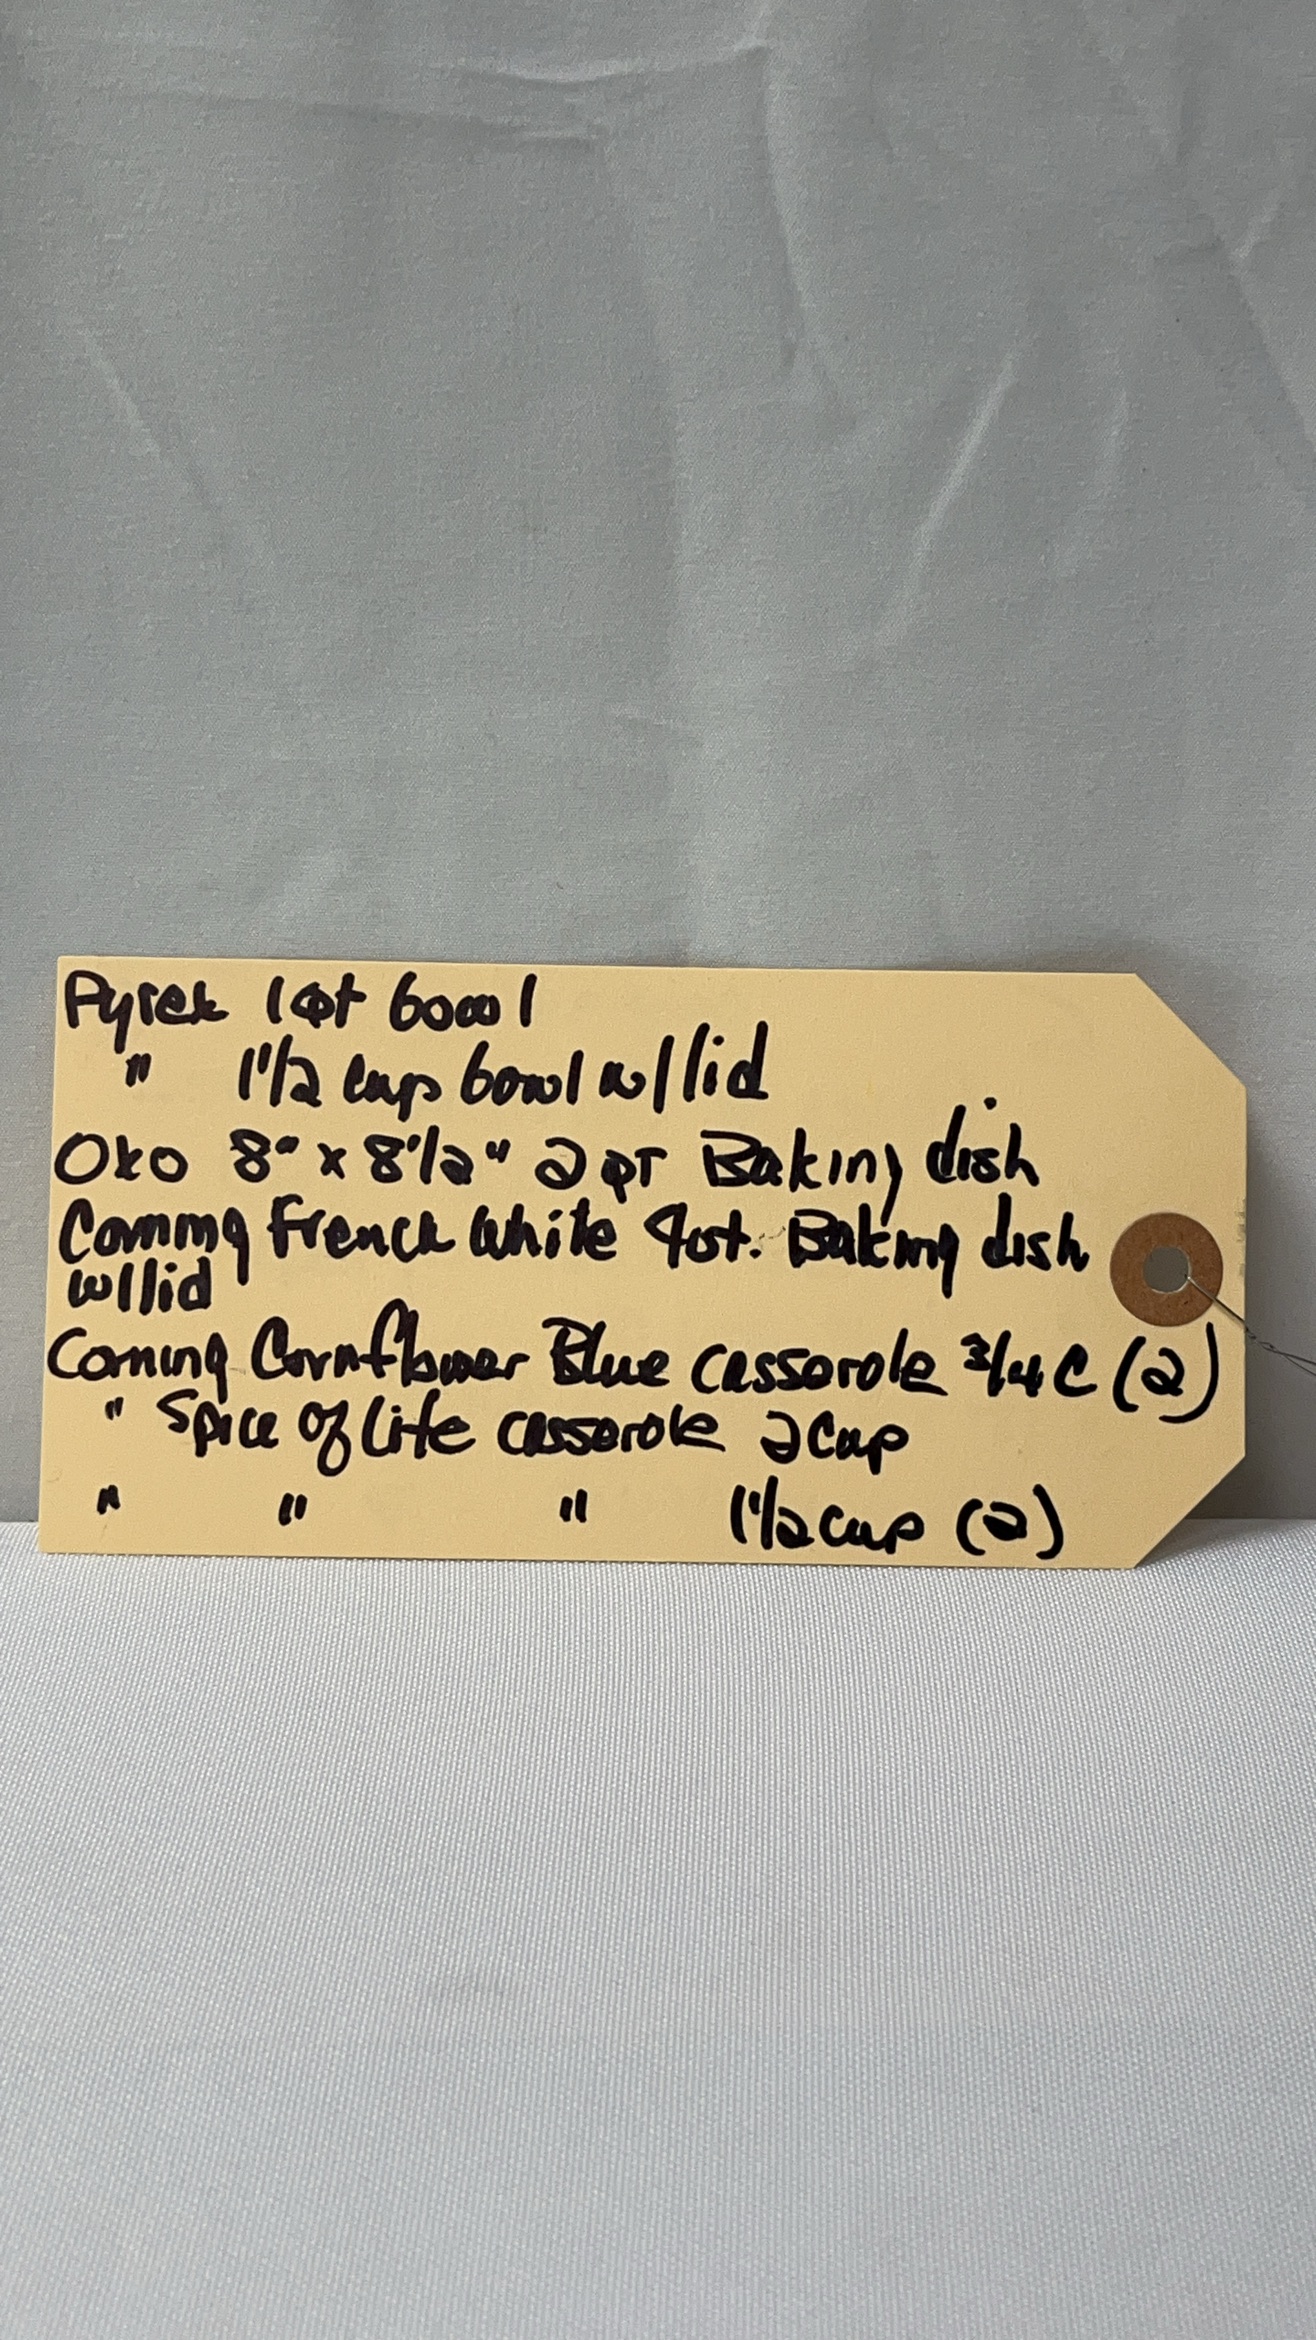 Pyrex 1 Qt bowl
" 1 1/2 cup bowl w/lid
OXO 8" x 8 1/2" 2 QT Baking dish
Corning French White 4qt. Baking dish
w/lid
Corning Cornflower Blue casserole 3/4 C (2)
" Spice Of Life casserole 2 cup
" " " 1 1/2 cup (2)